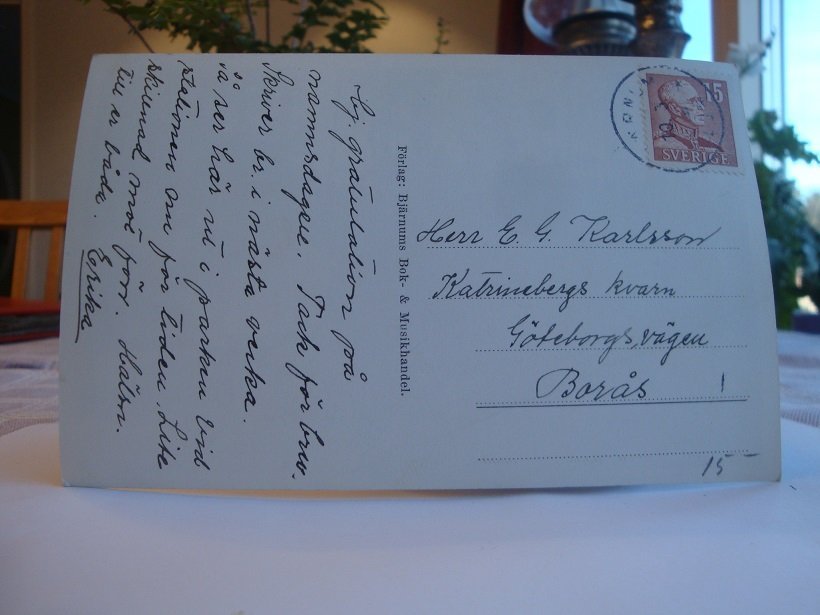 Hj. gratulation på
namnsdagen. Tack för brev.
Skriver br. i nästa vecka.
Så ser här ut i parken vid
stationen om för tiden. Lite
skillnad mot förr. Hälsn.
till er båda. Erika
Förlag: Bjärnums Bok- & Musikhandel.
15
SVERIGE
Herr E. G. Karlsson
Katrinebergs kvarn
Göteborgsvägen
Borås
15